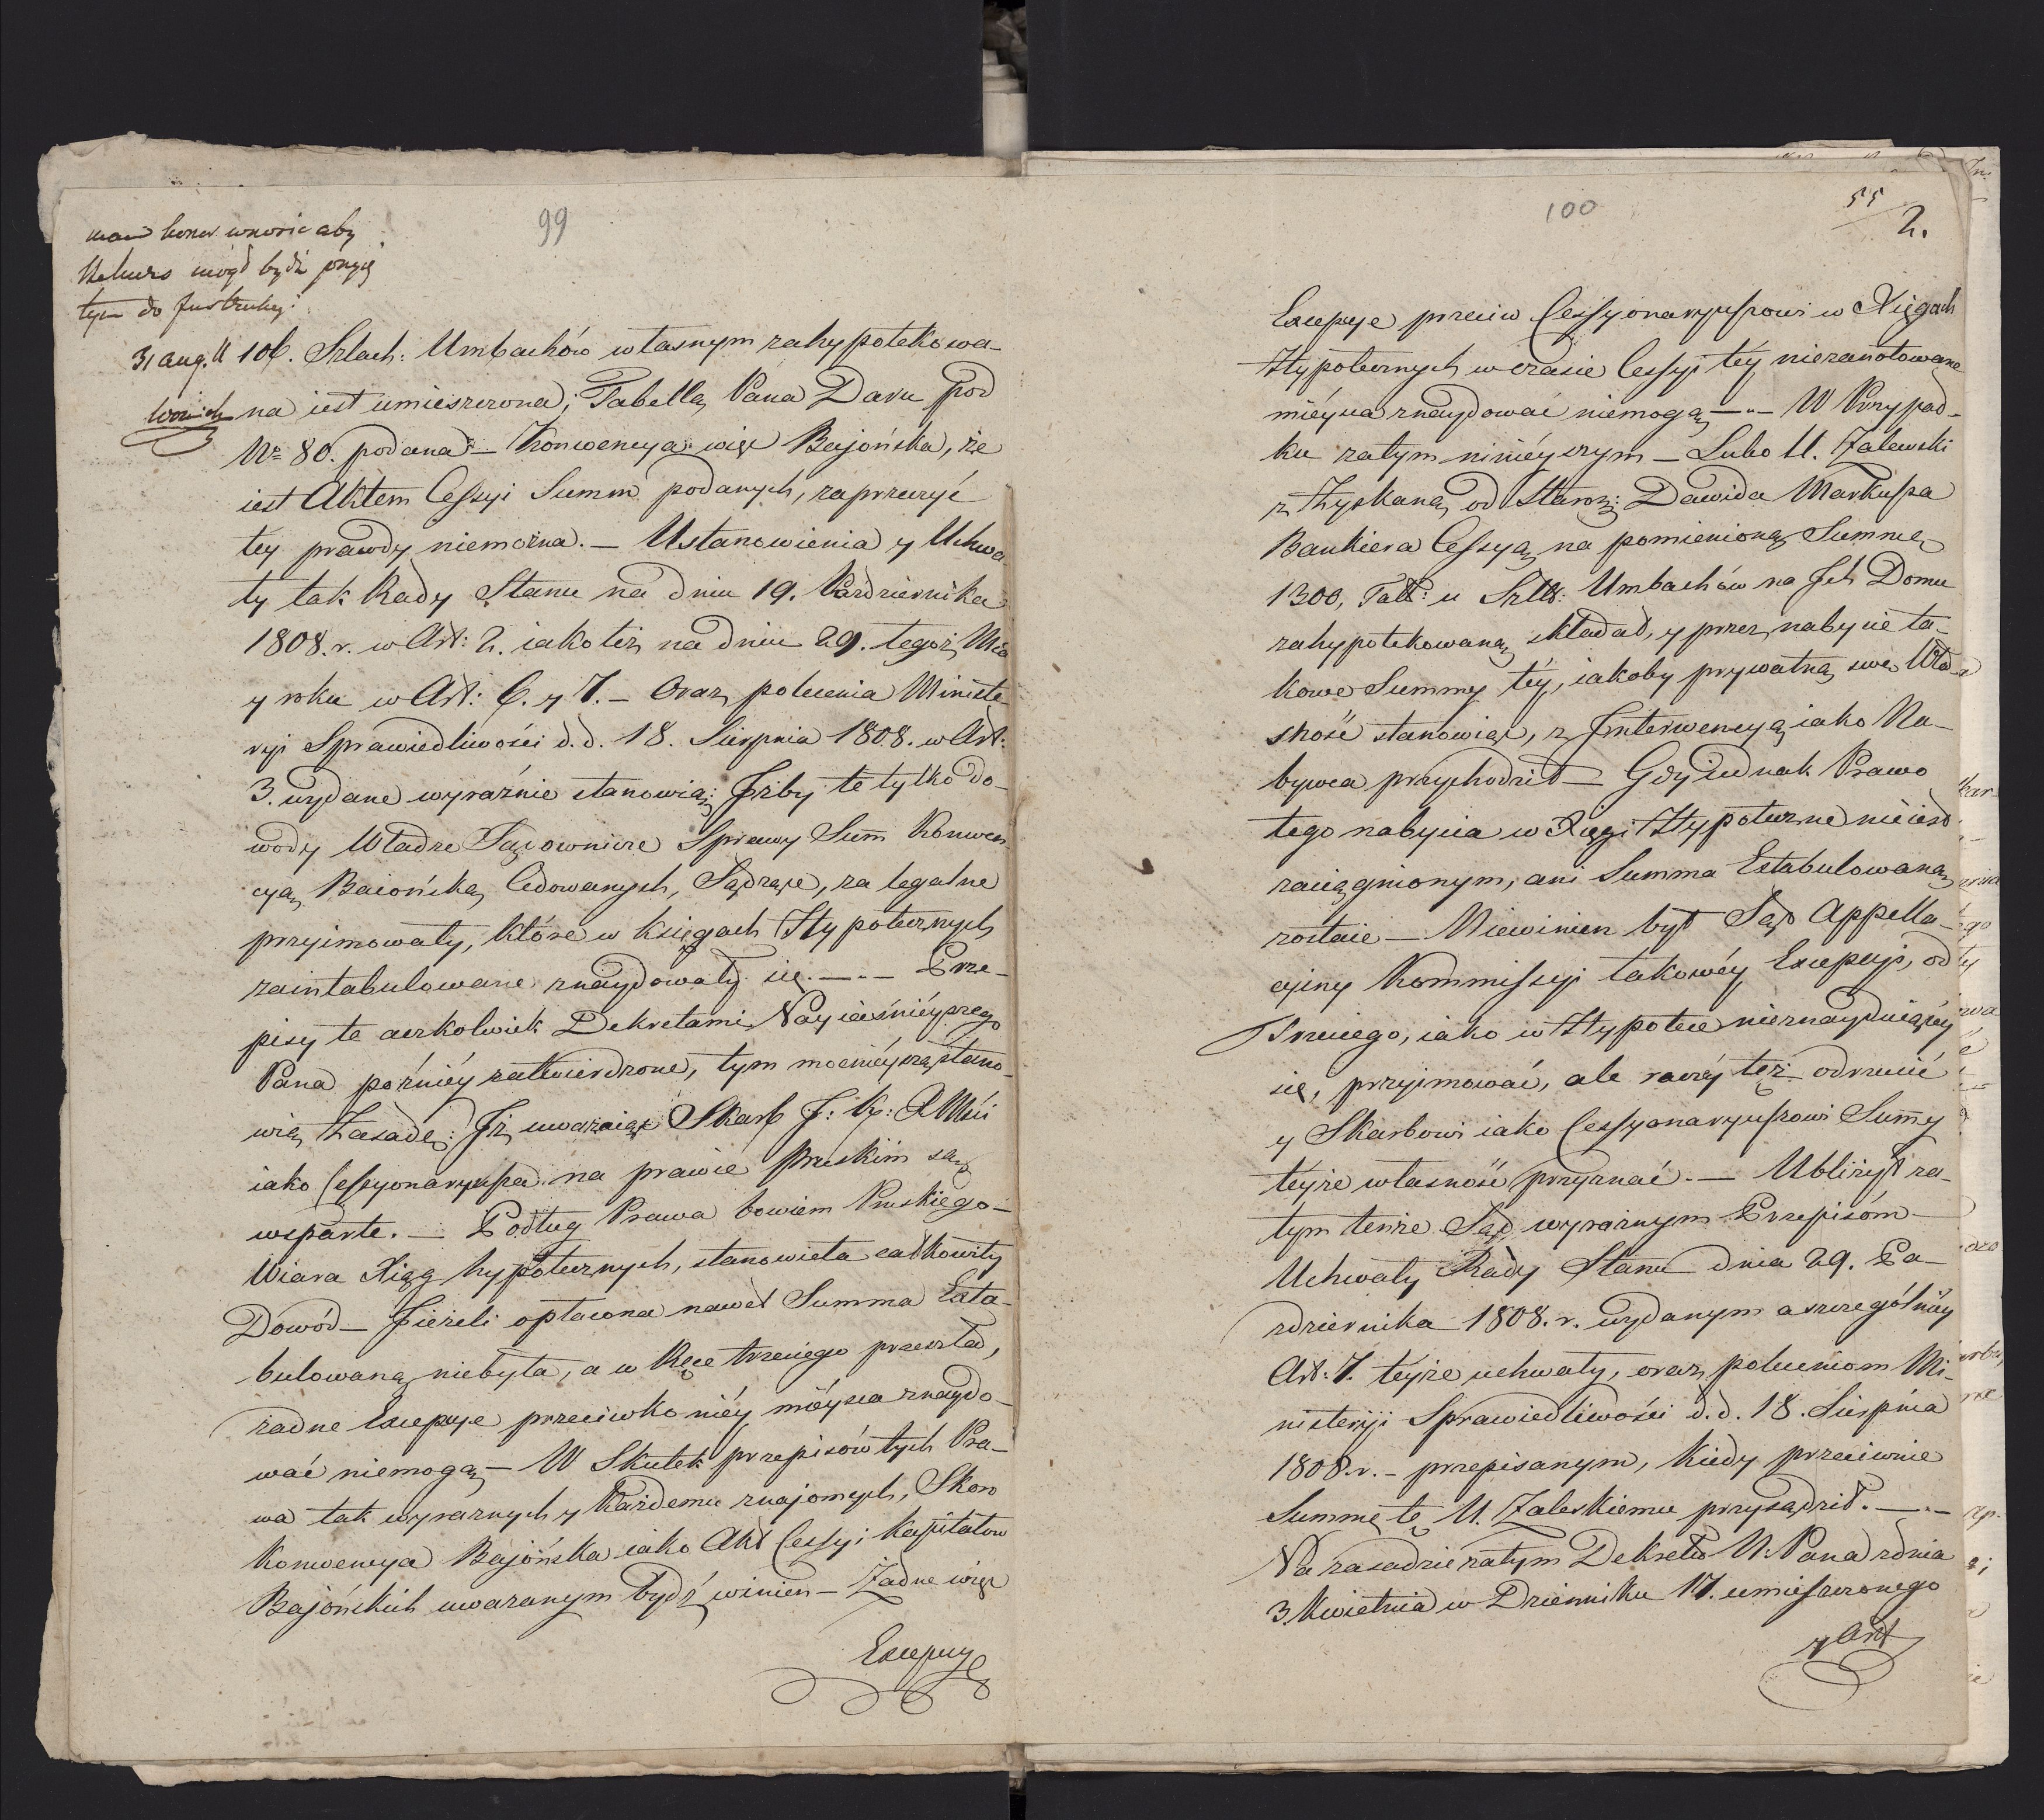 99
mam honor wnosić aby
Rekurs mógł bydź przyię
tym do Instrukcyi
31 aug. 11
Woźnicki
106. Szlach: Umbachów własnym zahypotekowa-
na iest umieszczona, Tabellą Pana Daru pod
Nº 80. podana.— Konwencya więc Bajońska, że
iest Aktem Cessyi Summ podanych, zaprzeczyć
téy prawdy niemożna.— Ustanowienia y Uchwa
ły tak Rady Stanu na dniu 19. Października
1808. r. w Art: 2. iako też na dniu 29. tegoż Mca
y roku w Art: 6. y 7.— Oraz polecenia Ministe
ryi Sprawiedliwości d. d. 18. Sierpnia 1808. w Art:
3. wydane wyraźnie stanowią: Iżby te tylko do-
wody Władze Sądownicze Sprawy Sum Konwen
cyą Baiońską Cedowanych, Sądzące, za legalne
przyimowały, które w księgach Hypotecznych
zaintabulowane znaydowały się.—.— Prze-
pisy te aczkolwiek Dekretami Nayiaśniéyszego
Pana poźniéy zatwierdzone, tym mocniéyszą stano-
wią Zasadę: Iż uważaiąc Skarb J: K: X Mci
iako Cessyonaryusza na prawie Pruskim są
wsparte.— Podług Prawa bowiem Pruskiego
Wiara Xiąg hypotecznych, stanowiła całkowity
Dowód— Jeżeli opłacona nawet Summa Exta-
bulowaną niebyła, a w Ręce trzeciego przeszła,
żadne Excepcye przeciwko niéy miéysca znaydo-
wać niemogą— W Skutek przepisów tych Pra-
wa tak wyraźnych y Każdemu znajomych, Skoro
Konwencya Bajońska iako Akt Cessyi Kapitałow
Bajońskich uważanym bydź winien— Żadne więc
Excepcye
100
55
2.
Excepcye przeciw Cessyonaryuszowi w Xięgach
Hypotecznych w czasie Cessyi téy niezanotowane
miéysca znaydować niemogą—.— W Przypad-
ku zatym niniéyszym— Lubo U. Zalewski
z Zyskaną od Staroz: Dawida Markusa
Bankiera Cessyą na pomienioną Summę
1300, Tall: u Szl: Umbachów na Ich Domu
zahypotekowaną składał, y przez nabycie ta-
kowe Summy téy, iakoby prywatną swą Wła-
sność stanowiąc, z Interwencyą iako Na-
bywca przychodził— Gdy iednak Prawo
tego nabycia w Xięgi Hypoteczne nieiest
zaciągnionym, ani Summa Extabulowaną
zostaie— Niewinien był Sąd Appella-
cyiny Kommissyi takowéy Excepcyi, od
Trzeciego, iako w Hypotece nieznayduiącéy
się, przyimować, ale raczéy téż odrzucić
y Skarbowi iako Cessyonaryuszowi Sumy
téyże własność przyznać.— Ubliżył za-
tym tenże Sąd wyraźnym Przepisóm
Uchwały Rady Stanu dnia 29. Pa-
ździernika 1808. r. wydanym a szczególniéy
Art: 7. téyże uchwały, oraz poleceniom Mi-
nisteryi Sprawiedliwości d. d. 18. Sierpnia
1808. r.— przepisanym, kiedy przeciwnie
Summę tę U. Zaleskiemu przysądził.—.—
Na zasadzie zatym Dekretu N. Pana z dnia
3. Kwietnia w Dzienniku 17. umieszczonego
y Art